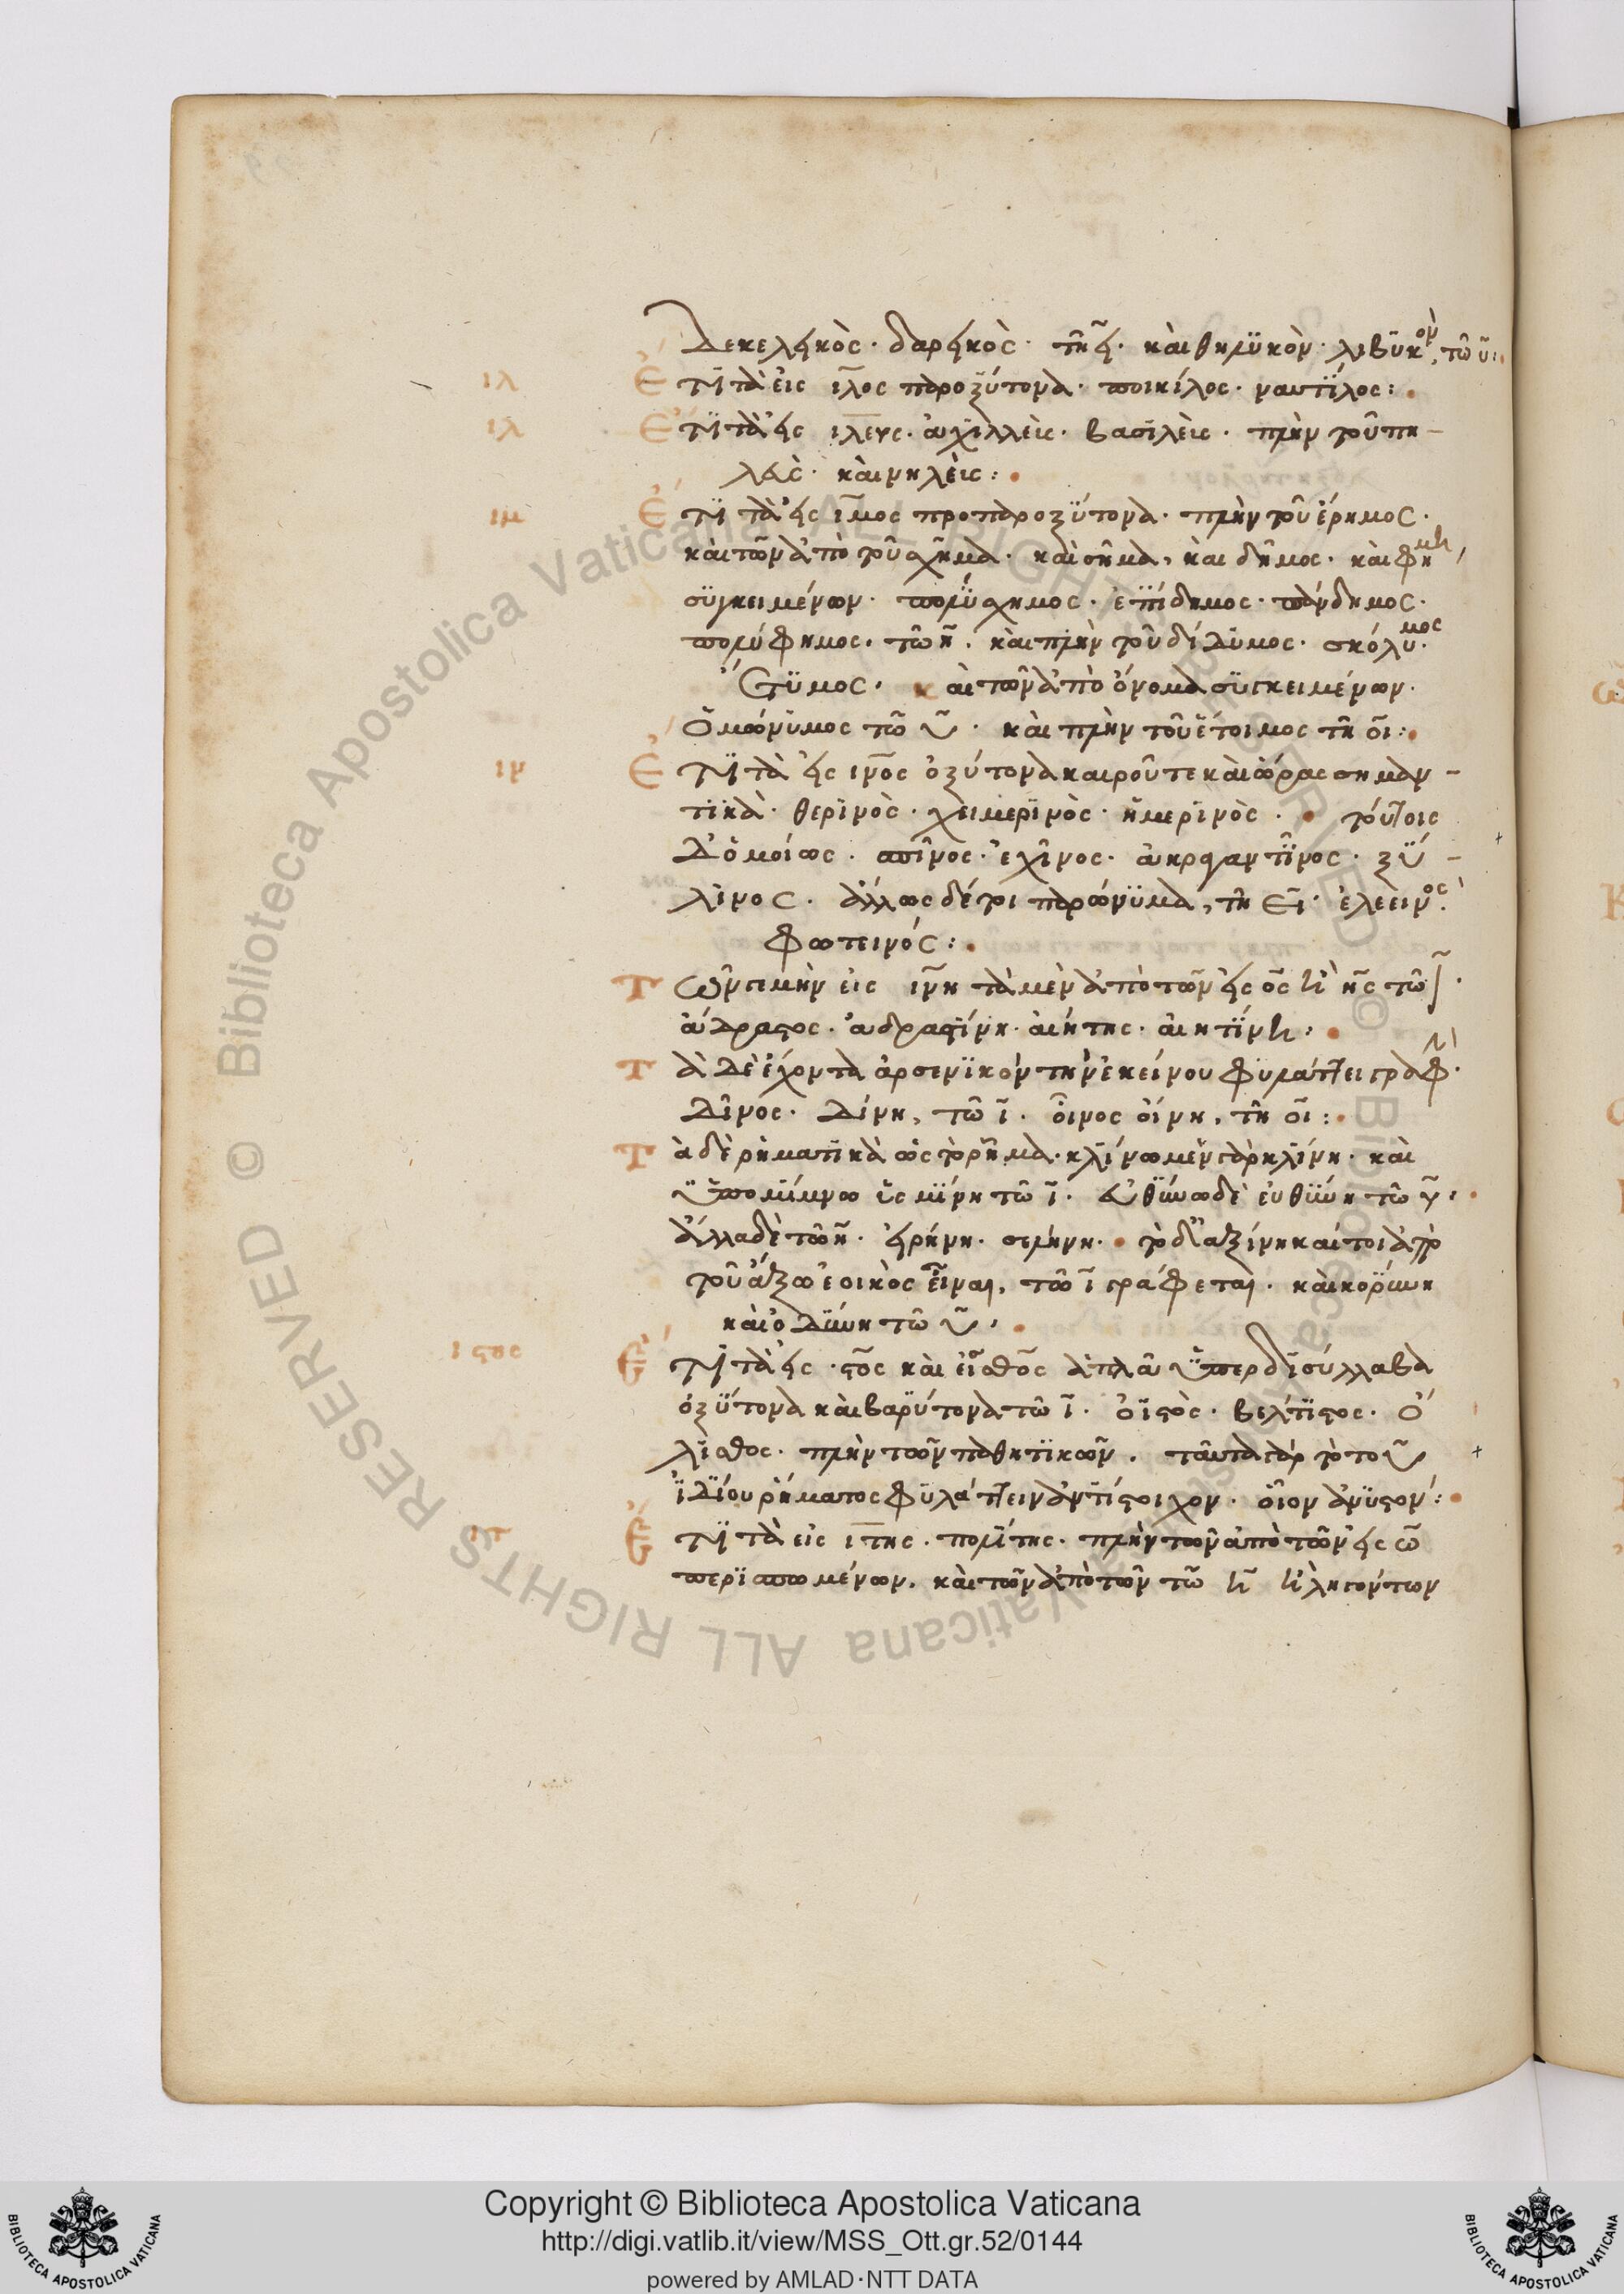 Δεκελεικὸς· δαρεικὸς· τῆ ει· καὶ θηλϋκὸν· λιβϋκὸν, τῶ υ:
ιλ Ἔτϊ τὰ εἰς ιλος παροξύτονα· ποικίλος· ναυτΐλος:
ιλ Ἔτϊ τὰ εἰς ιλευς· ἀχϊλλεὺς· βασϊλεὺς· πλὴν τοῦ πη-
λεὺς· καὶ νηλεὺς:
ιμ Ἔτϊ τὰ εἰς ιμος προπαροξΰτονα· πλὴν τοῦ ἔρημος·
καὶ τῶν ἀπὸ τοῦ σχῆμα· καὶ σῆμα, καὶ δῆμος· καὶ φήμη,
σϋγκειμένων· πολΰσχημος· ἐπΐδημος· πάνδημος·
πολύφημος, τῶ η· καὶ πλὴν τοῦ δίδϋμος· σκόλυμος·
ἔτϋμος· καὶ τῶν ἀπὸ ὄνομα σϋγκειμένων·
ὁμώνϋμος τῶ υ· καὶ πλὴν τοῦ ἕτοιμος τῆ οι:
ιν Ἔτϊ τὰ εἰς ινος ὀξύτονα καιροῦ τε καὶ ὥρας σημαν-
τϊκὰ· θερϊνὸς· χειμερϊνὸς· ἡμερϊνὸς· τούτοις
δ' ὁμοίως· πῖνος· ἐχῖνος· ἀκραγαντῖνος· ξΰ-
λϊνος· ἄλλως δέ τοι παρώνϋμα, τῆ ει· ἐλεεινός·
φωτεινός:
Τῶν γε μὴν εἰς ινη τὰ μὲν ἀπὸ τῶν εἰς ος ἢ ης τῶ ι·
ἄδραστος· ἀδραστΐνη· ἀιήτης· ἀιητΐνη·
Τὰ δὲ ἔχοντα ἀρσενϊκὸν τὴν ἐκείνου φυλάττει γραφήν·
δῖνος· δίνη, τῶ ι· οἶνος οἴνη, τῆ οι:
Τὰ δὲ ῥηματϊκὰ ὡς τὸ ῥῆμα· κλΐνω μὲν γὰρ κλΐνη· καὶ
ϋπομίμνω ὑσμΐνη τῶ ι· εὐθΰνω δὲ εὐθΰνη τῶ υ·
ἄλλα δὲ τῶ η· εἰρήνη· σελήνη· τὸ δ' ἀξίνη καίτοι ἀπὸ
τοῦ ἄξω ἐοικὸς εἶναι, τῶ ι γράφεται· καὶ κορΰνη
καὶ ὀδΰνη τῶ υ·
ιστος Ἔτϊ τὰ εἰς ·στος καὶ εἰς σθος ἁπλᾶ ϋπερδϊσύλλαβα
ὀξΰτονα καὶ βαρΰτονα τῶ ι· ὀϊστὸς· βέλτϊστος· ὄ
λϊσθος· πλὴν τῶν παθητϊκῶν· ταῦτα γὰρ τὸ τοῦ
ἰδΐου ῥήματος φϋλάττειν ἀντΐστοιχον· οἷον ἀνϋστόν:
ιτ Ἔτϊ τὰ εἰς ιτης· πολΐτης· πλὴν τῶν ἀπὸ τῶν εἰς ω
περϊσπωμένων· καὶ τῶν ἀπὸ τῶν τῶ η ἢ ληγόντων
Copyright © Biblioteca Apostolica Vaticana
http://digi.vatlib.it/view/MSS_Ott.gr.52/0144
powered by AMLAD·NTT DATA